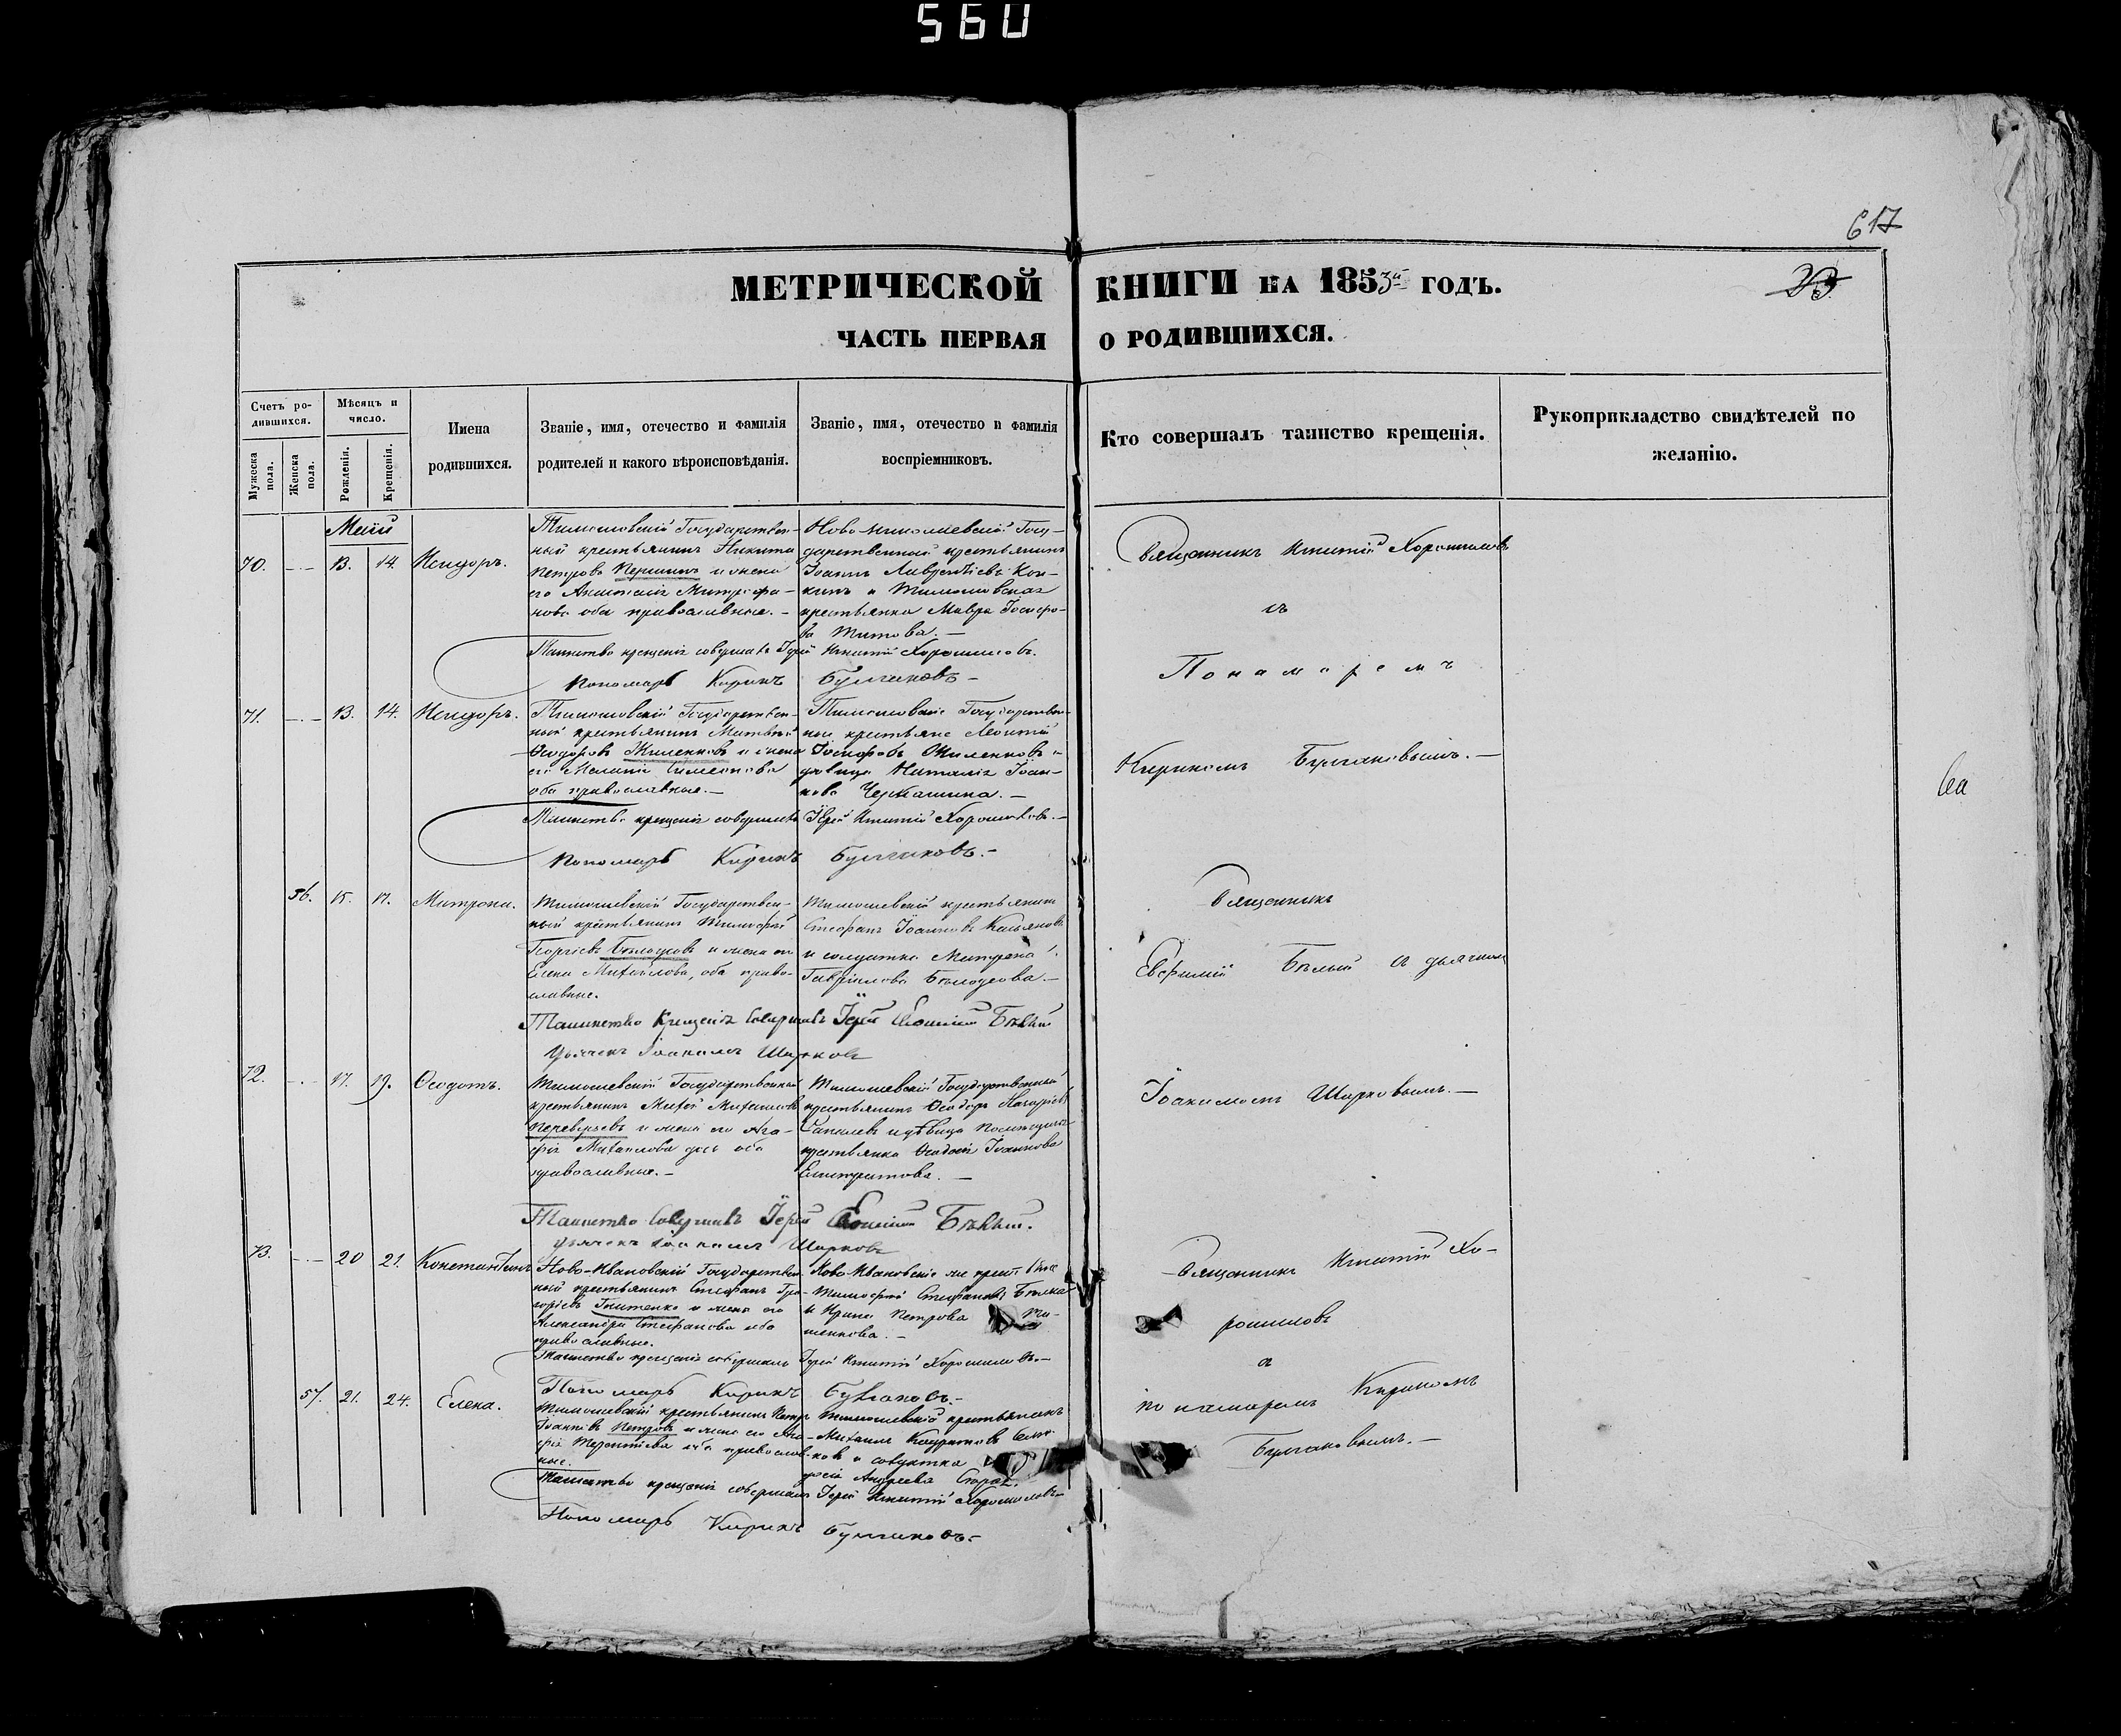 560
617
МЕТРИЧЕСКОЙ КНИГИ НА 1853й ГОДЪ.
ЧАСТЬ ПЕРВАЯ О РОДИВШИХСЯ.
Счетъ ро-
дившихся.
Мужеска пола.
Женска пола.
Мѣсяцъ и
число.
Рожденія.
Крещенія.
Имена
родившихся.
Званіе, имя, отечество и фамилія
родителей и какого вѣроисповѣданія.
Званіе, имя, отечество и фамилія
воспріемниковъ.
Кто совершалъ таинство крещенія.
Рукоприкладство свидѣтелей по
желанію.
Маій
70. 13. 14. Исидоръ.
Тимошовскій Государствен-
ный крестьянинъ Никита
Петровъ и жена
его Анастасія Митрофа-
нова оба православные.-
Ново николаевскій Госу-
дарственный крестьянинъ
Іоаннъ
и Тимошовская
крестьянка Мавра Іосифо-
ва Титова.-
Таинство крещенія совершалъ Іерей Игнатій Хорошиловъ.
Пономарь Кирикъ Булгаковъ-
Священникъ Игнатій Хорошиловъ
съ
Понамаремъ
Кирикомъ Булгаковымъ.-
71. 13. 14. Исидоръ.
Тимошовскій Государствен-
ный крестьянинъ Матвѣй
Ѳеодоровъ Жиленковъ и жена
его Меланія Симеонова
оба православные.-
Тимошовскіе Государствен-
ные крестьяне Леонтій
Іосифовъ Жиленковъ и
дѣвица Наталія Іоан-
нова
Таинство крещенія совершалъ Іерей Игнатій Хорошиловъ.-
Пономарь Кирикъ Булгаковъ.-
56. 15. 17. Матрона.
Тимошевскій Государствен-
ный крестьянинъ Тимофей
Георгіевъ Бѣлоусовъ и жена его
Елена Михайлова, оба право-
славные.
Тимошевскій крестьянинъ
Стефанъ Іоанновъ Касьяновъ
и солдатка Матрона
Гавріилова Бѣлоусова.-
Таинство Крещенія Совершалъ Іерей Евфимій Бѣлый
Дьячекъ Іоакимъ Шарковъ
Священникъ
Евфимій Бѣлый съ дьячкомъ
Іоакимомъ Шарковымъ.-
72. 17. 19. Ѳеодотъ.
Тимошевскій Государственный
крестьянинъ Михаилъ Михаиловъ
Переверзевъ и жена его Ага-
фія Михаилова оба
православные.-
Тимошевскій Государственный
крестьянинъ Ѳеодоръ Назарьевъ
Сапелевъ и дѣвица
крестьянка Ѳеодосія Іоаннова
Таинство Совершалъ Іерей Евфимій Бѣлый.
Дьячекъ Іоакимъ Шарковъ
73. 20 21. Константинъ
Ново-Ивановскій Государствен-
ный крестьянинъ Стефанъ Гри-
горьевъ Гнитенко и жена его
Александра Стефанова оба
православные.
Ново Ивановскіе
Тимофей Стефановъ
и Ирина Петрова
Таинство крещенія совершалъ Іерей Игнатій Хорошиловъ.-
Пономарь Кирикъ Булгаковъ.-
Священникъ Игнатій Хо-
рошиловъ
съ
понамаремъ Кирикомъ
Булгаковымъ.-
57. 21. 24. Елена.
Тимошевскій крестьянинъ Петръ
Іоанновъ Петровъ и жена его Ага-
фія Терентіева оба православ-
ные.
Тимошевскій крестьянинъ
Михаилъ Кондратовъ
и солдатка
Андреева
Таинство крещенія совершалъ Іерей Игнатій Хорошиловъ.-
Пономарь Кирикъ Булгаковъ.-